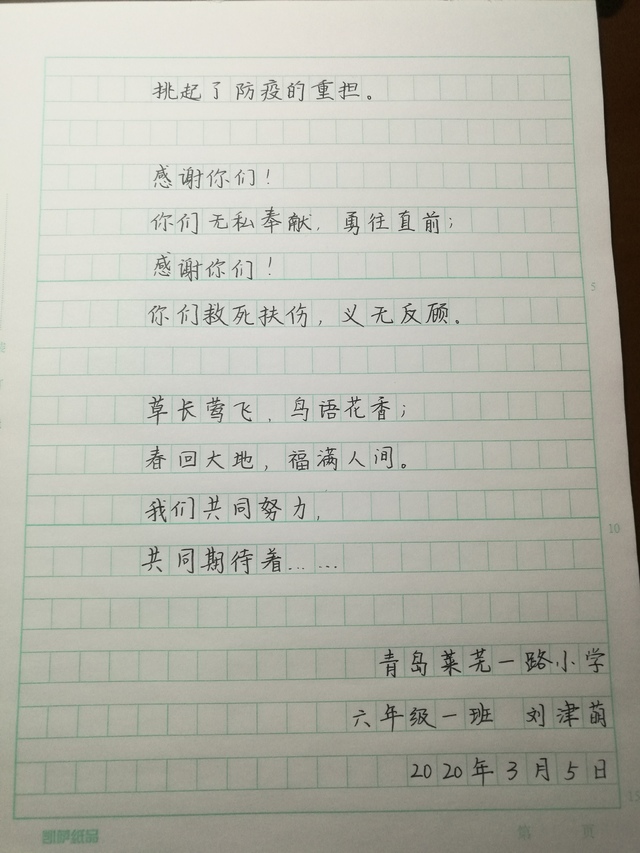 挑起了防疫的重担。
感谢你们！
你们无私奉献，勇往直前；
感谢你们！
你们救死扶伤，义无反顾。
5
草长莺飞，鸟语花香；
春回大地，福满人间。
我们共同努力，
10
共同期待着……
青岛莱芜一路小学
六年级一班 刘津萌
2020年3月5日
15
第 页